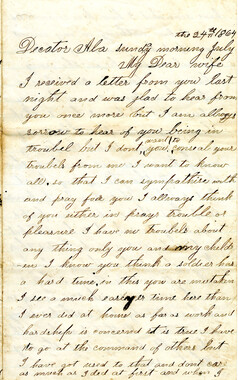 the 24th 1864
Decator Ala sunday morning July
My Dear wife
I received a letter from you last
night and was glad to hear from
you once more but I am allways
sorrow to hear of you being in
troubel but I dont want to
you conseal your
troubels from me I want to know
all so that I can sympathise with
and pray for you I allways think
of you either in prays trouble or
pleasure I have no troubels about
any thing only you and my childr
en I know you think a soldier has
a hard time in this you are mistaken
I see a much easyer time here than
I ever did at home as far as work and
hardships is concerned it is true I have
to go at the command of others but
I have got used to that and dont car
as much as I did at first and when I